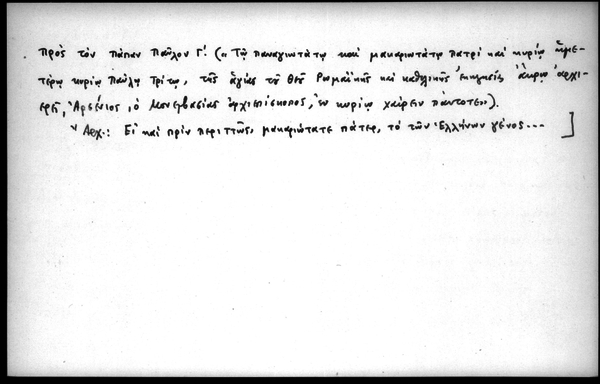 Πρὸς τὸν πάπαν Παῦλον Γ'. (« Τῷ παναγιωτάτῳ καὶ μακαριωτάτῳ πατρὶ καὶ κυρίῳ ἡμε-
τέρῳ κυρίῳ Παύλῳ Τρίτῳ, τῆς ἁγίας τοῦ θεοῦ Ρωμαϊκῆς καὶ καθολικῆς ἐκκλησίας ἄκρῳ ἀρχι-
ερεῖ, Ἀρσένιος, ὁ Μονεμβασίας ἀρχιεπίσκοπος, ἐν κυρίῳ χαίρειν πάντοτε»).
Ἀρχ.: Εἰ καὶ πρὶν περιττῶς, μακαριώτατε πάτερ, τὸ τῶν Ἑλλήνων γένος... ]